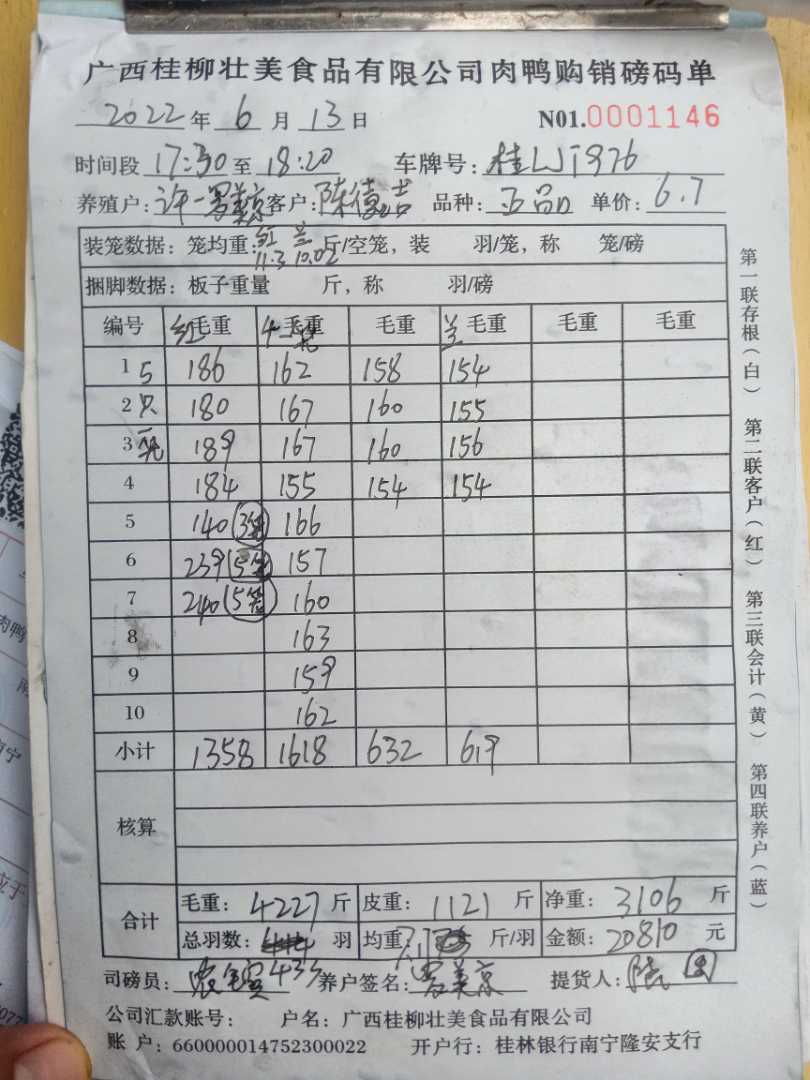 广西桂柳壮美食品有限公司肉鸭购销磅码单
2022年6月13日 N01.0001146
时间段 17:30至18:20 车牌号:桂LJ1976
养殖户:许一罗美京 客户:陈德吉 品种:王品 单价:6.7
装笼数据:笼均重:红11.3 兰10.02斤/空笼,装 羽/笼,称 笼/磅
捆脚数据:板子重量 斤,称 羽/磅
编号 红毛重 毛重 毛重 兰毛重 毛重 毛重
1 5 186 162 158 154
2 只 180 167 160 155
3 189 167 160 156
4 184 155 154 154
5 140(3笼) 166
6 239(5笼) 157
7 240(5笼) 160
8 163
9 159
10 162
小计 1358 1618 632 619
核算
合计 毛重:4227斤 皮重:1121斤 净重:3106斤
总羽数: 羽 均重: 斤/羽 金额:20810元
433
司磅员: 养户签名:罗美京 提货人:
公司汇款账号: 户名:广西桂柳壮美食品有限公司
账 户:660000014752300022 开户行:桂林银行南宁隆安支行
第一联存根(白) 第二联客户(红) 第三联会计(黄) 第四联养户(蓝)
肉鸭
南宁
应于